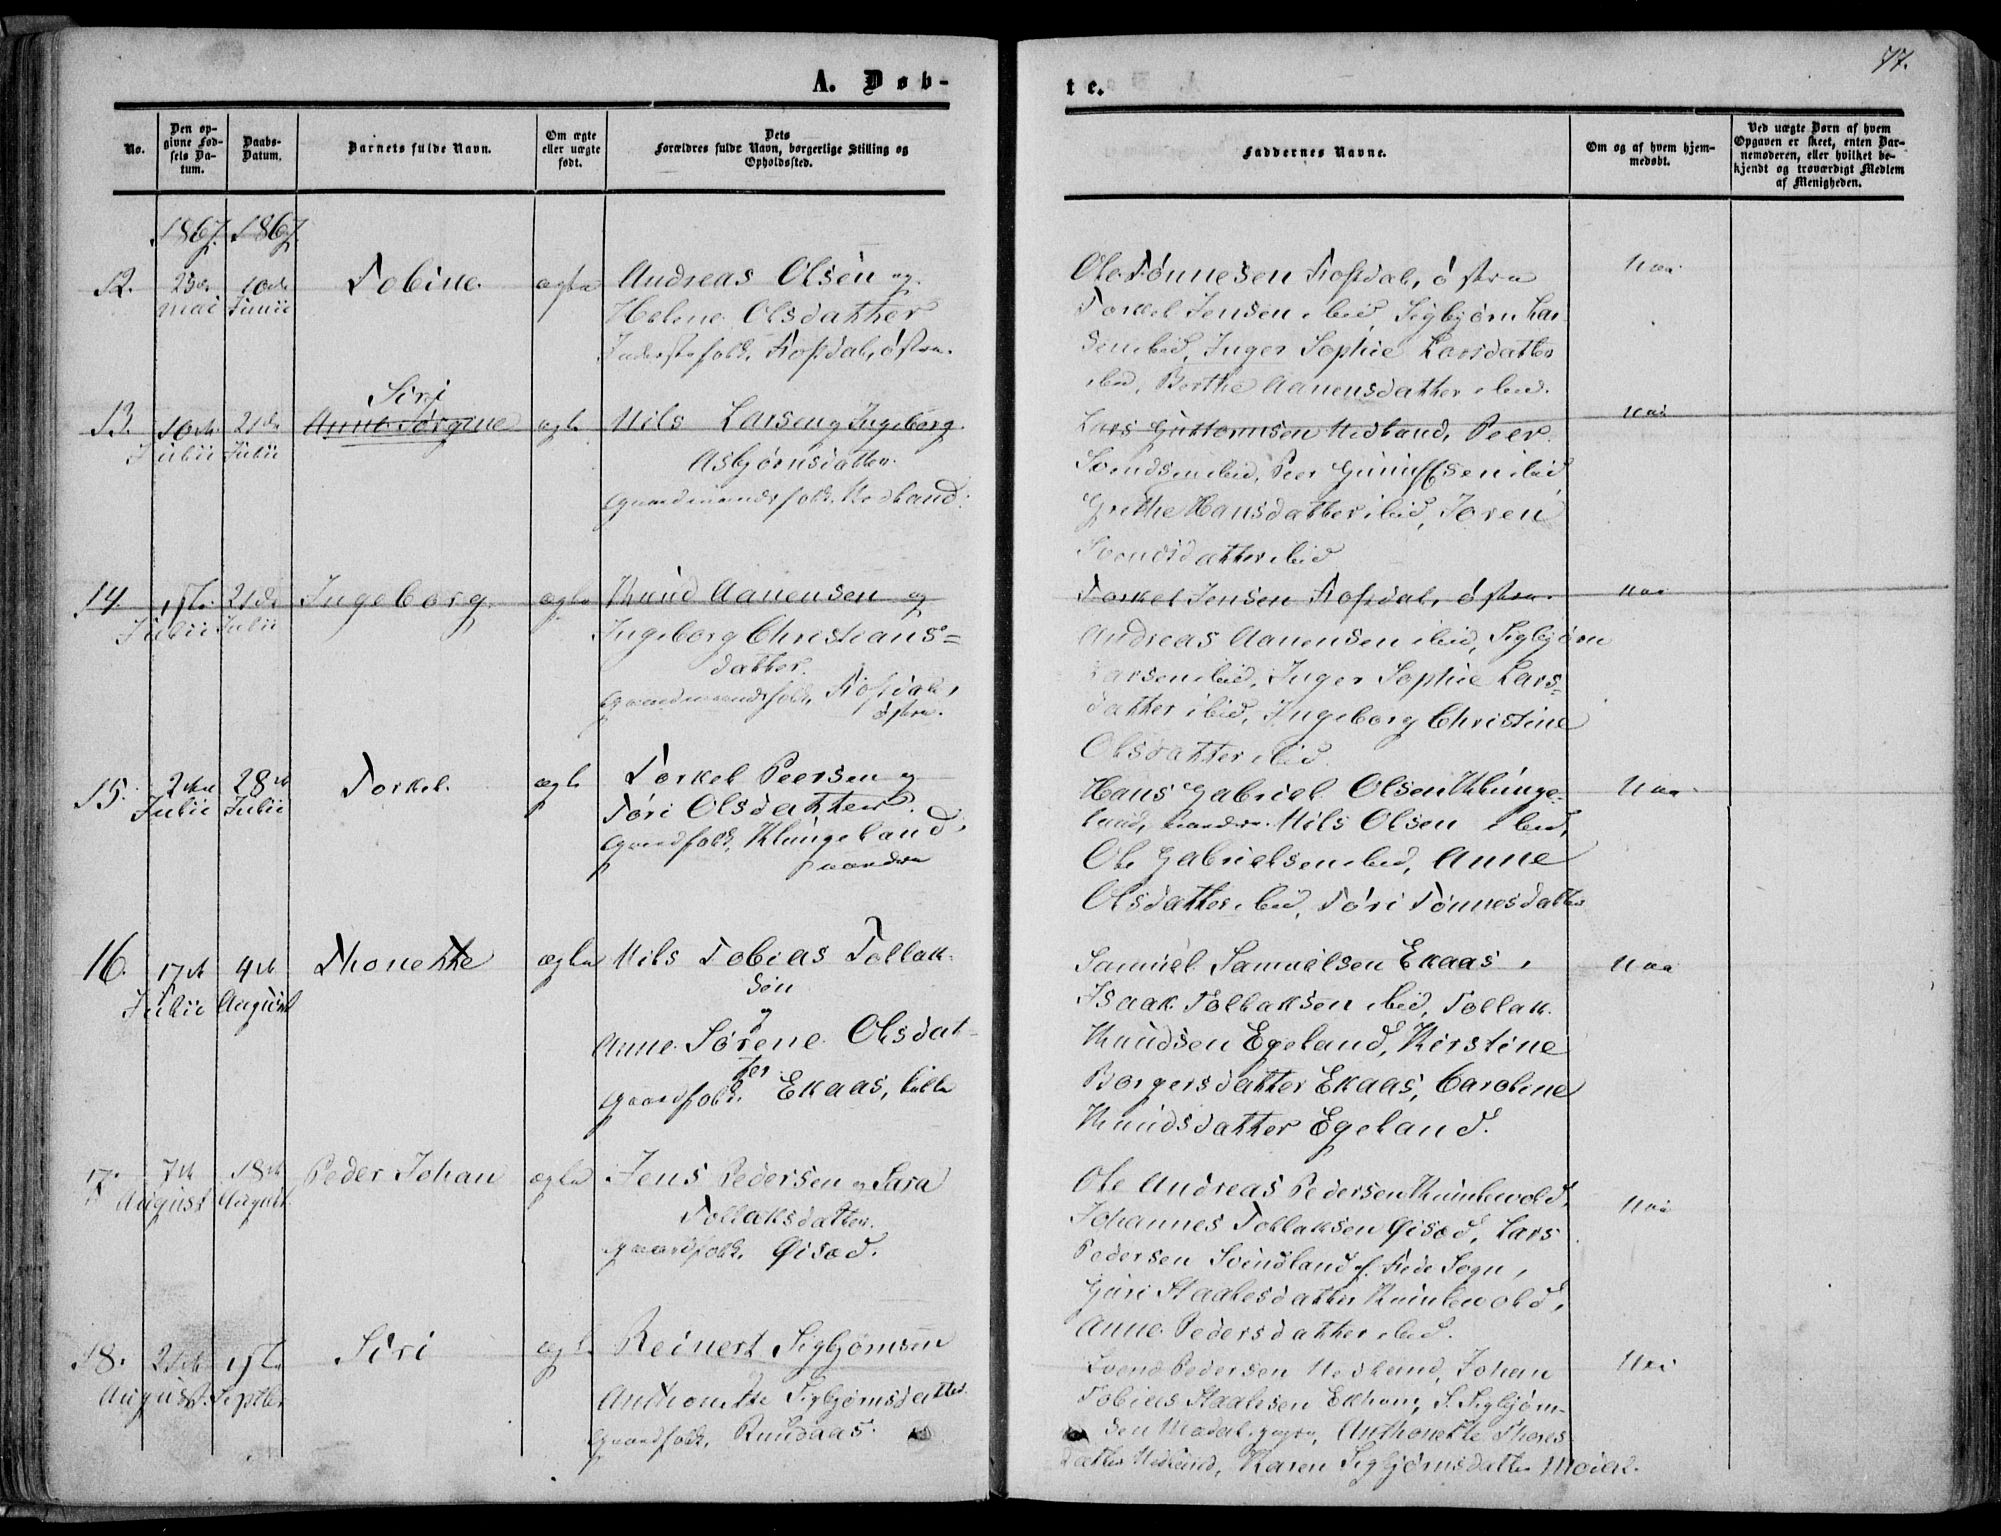 A. Døb-
No.
Den op-
givne Fød-
sels Da-
tum.
Daabs-
Datum.
Barnets fulde Navn.
Om ægte
eller uægte
født.
Dets
Forældres fulde Navn, borgerlige Stilling og
Opholdssted.
1867. 1867.
12.
23de
mai
10de
Junii
Tobine.
ægte
Andreas Olsen og
Helene Olsdatter
Inderstefolk, Fosdal, østre.
13.
10de
Julii
21de
Julii
Siri
Anne Sørgine
ægte
Nils Larsen og Ingeborg
Asbjørnsdatter.
Gaardmandsfolk. Nedland.
14.
1ste
Julii
21de
Julii
Ingeborg
ægte
Knud Aanensen og
Ingeborg Christians=
datter.
Gaardmandsfolk, Fosdal,
østre.
15.
2den
Julii
28de
Julii
Torkel.
ægte
Torkel Peersen og
Tøri Olsdatter.
Gaardfolk, Klungeland,
nordre
16.
17de
Julii
4de
August
Thonette
ægte
Nils Tobias Tollak-
søn
og
Anne Sørene Olsdat-
ter
Gaardfolk. Ekaas, lille
17.
7de
August
18de
August
Peder Johan
ægte
Jens Pedersen og Sara
Tollaksdatter.
Gaardfolk. Øisæd.
18.
21de
August.
1ste
Septbr
Siri
ægte
Reinert Sigbjørnsen
Anthonette Sigbjørnsdatter
Gaardfolk,
te.
77.
Faddernes Navne.
Om og af hvem hjem-
medøbt.
Ved uægte Børn af hvem
Opgaven er skeet, enten Bar-
nemoderen, eller hvilket be-
kjendt og troværdigt Medlem
af Menigheden.
Ole Tønnesen Fosdal, østre
Torkel Jensen ibid, Sigbjørn Lar-
sen ibid, Inger Sophie Larsdatter
ibid, Berthe Aanensdatter ibid.
Nei
Lars Guttormsen Nedland, Peer
Svendsen ibid, Peer Gunulfsen ibid
Grethe Hansdatter ibid, Joren
Svendsdatter ibid
Nei
Torkel Jensen Fosdal, østre.
Andreas Aanensen ibid, Sigbjørn
Larsen ibid, Inger Sophie Lars-
datter ibid, Ingeborg Christine
Olsdatter ibid.
Nei
Hans Gabriel Olsen Klunge-
land, nordre. Nils Olsen ibid,
Ole Gabrielsen ibid, Anne
Olsdatter ibid, Tøri Tønnesdatter
Nei
Samuel Samuelsen Ekaas,
Isaak Tollaksen ibid, Tollak
Knudsen Egeland, Kirstine
Borgersdatter Ekaas, Caroline
Knudsdatter Egeland.
Nei
Ole Andreas Pedersen Kumlevold,
Johannes Tollaksen Øisæd, Lars
Pedersen Svindland af Fede Sogn,
Guri Staalesdatter Kumlevold,
Anne Pedersdatter ibid.
Nei
Svend Pedersen Nedland, Johan
Tobias Staalesen Ekhom, S. Sigbjørn-
sen Anthonette Thores
datter Nedland, Karen Sigbjørnsdatter
Nei